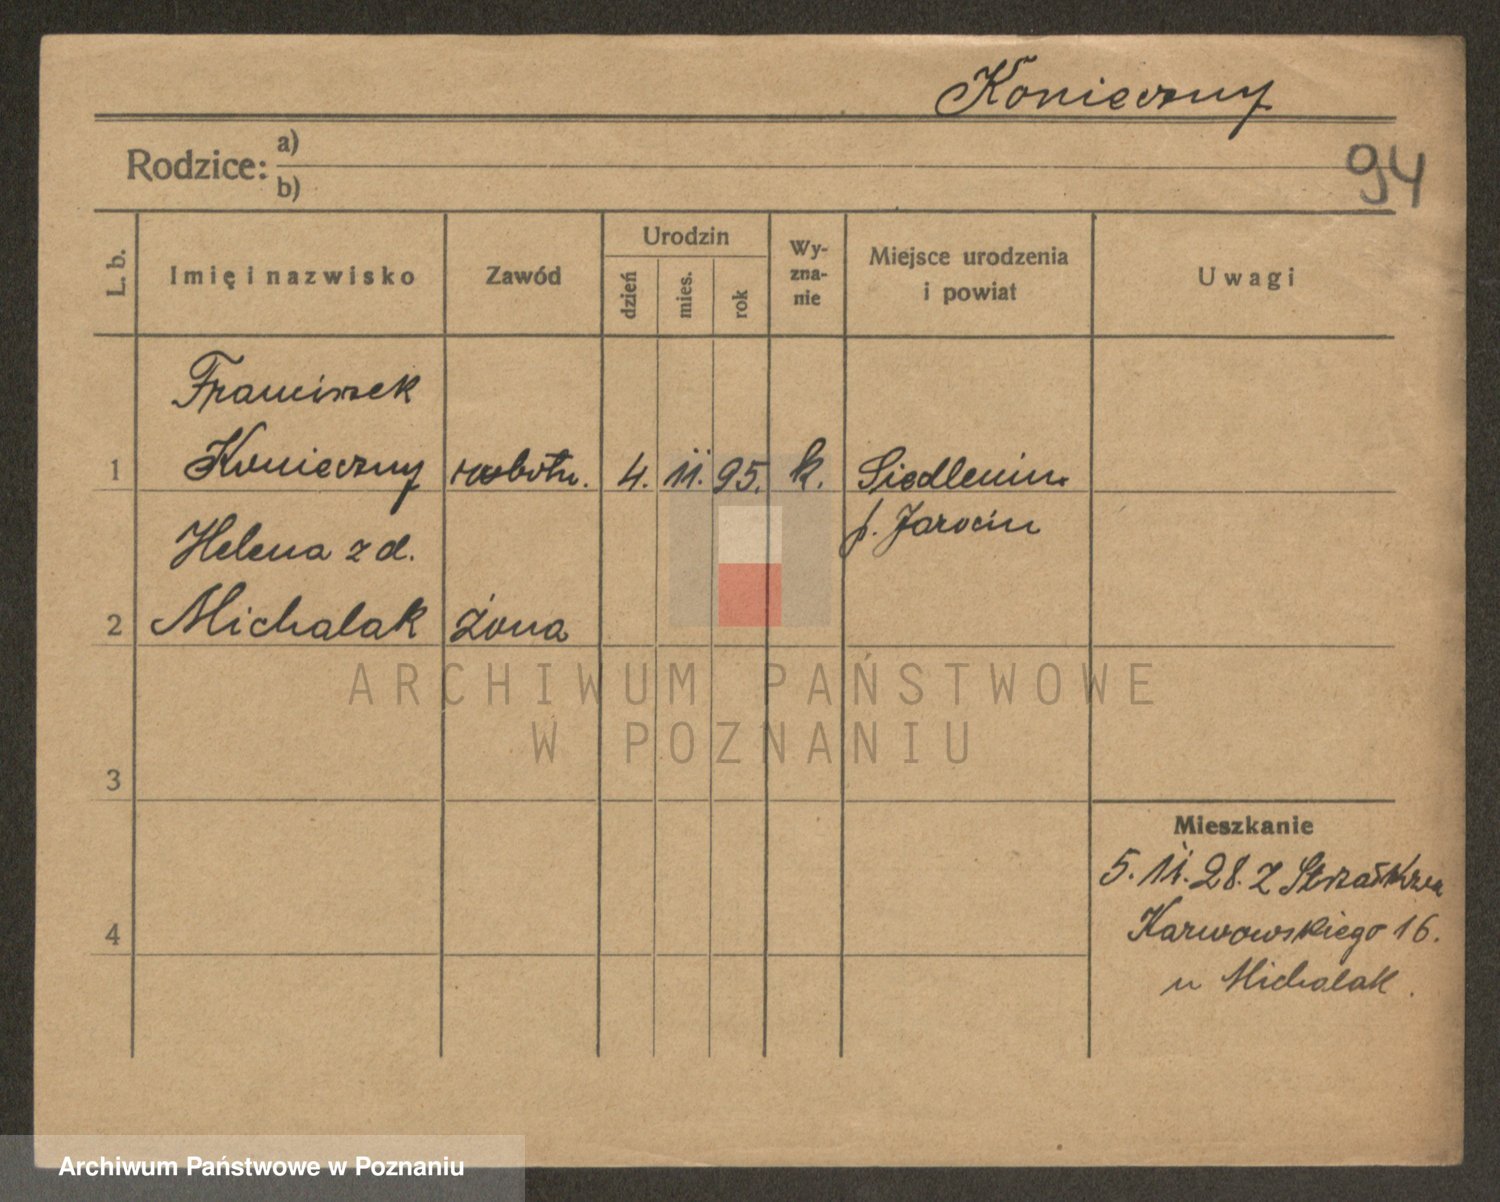 Konieczny
Rodzice: a)
b)
94
L. b.
Imię i nazwisko
Zawód
Urodzin
dzień
mies.
rok
Wy-
zna-
nie
Miejsce urodzenia
i powiat
Uwagi
Franciszek
1 Konieczny robotn. 4. 11. 95. k. Siedlemin
p. Jarocin
Helena z d.
2 Michalak żona
3
4
Mieszkanie
5. 11. 28. Z
Karwowskiego 16.
u Michalak.
ARCHIWUM PAŃSTWOWE
W POZNANIU
Archiwum Państwowe w Poznaniu